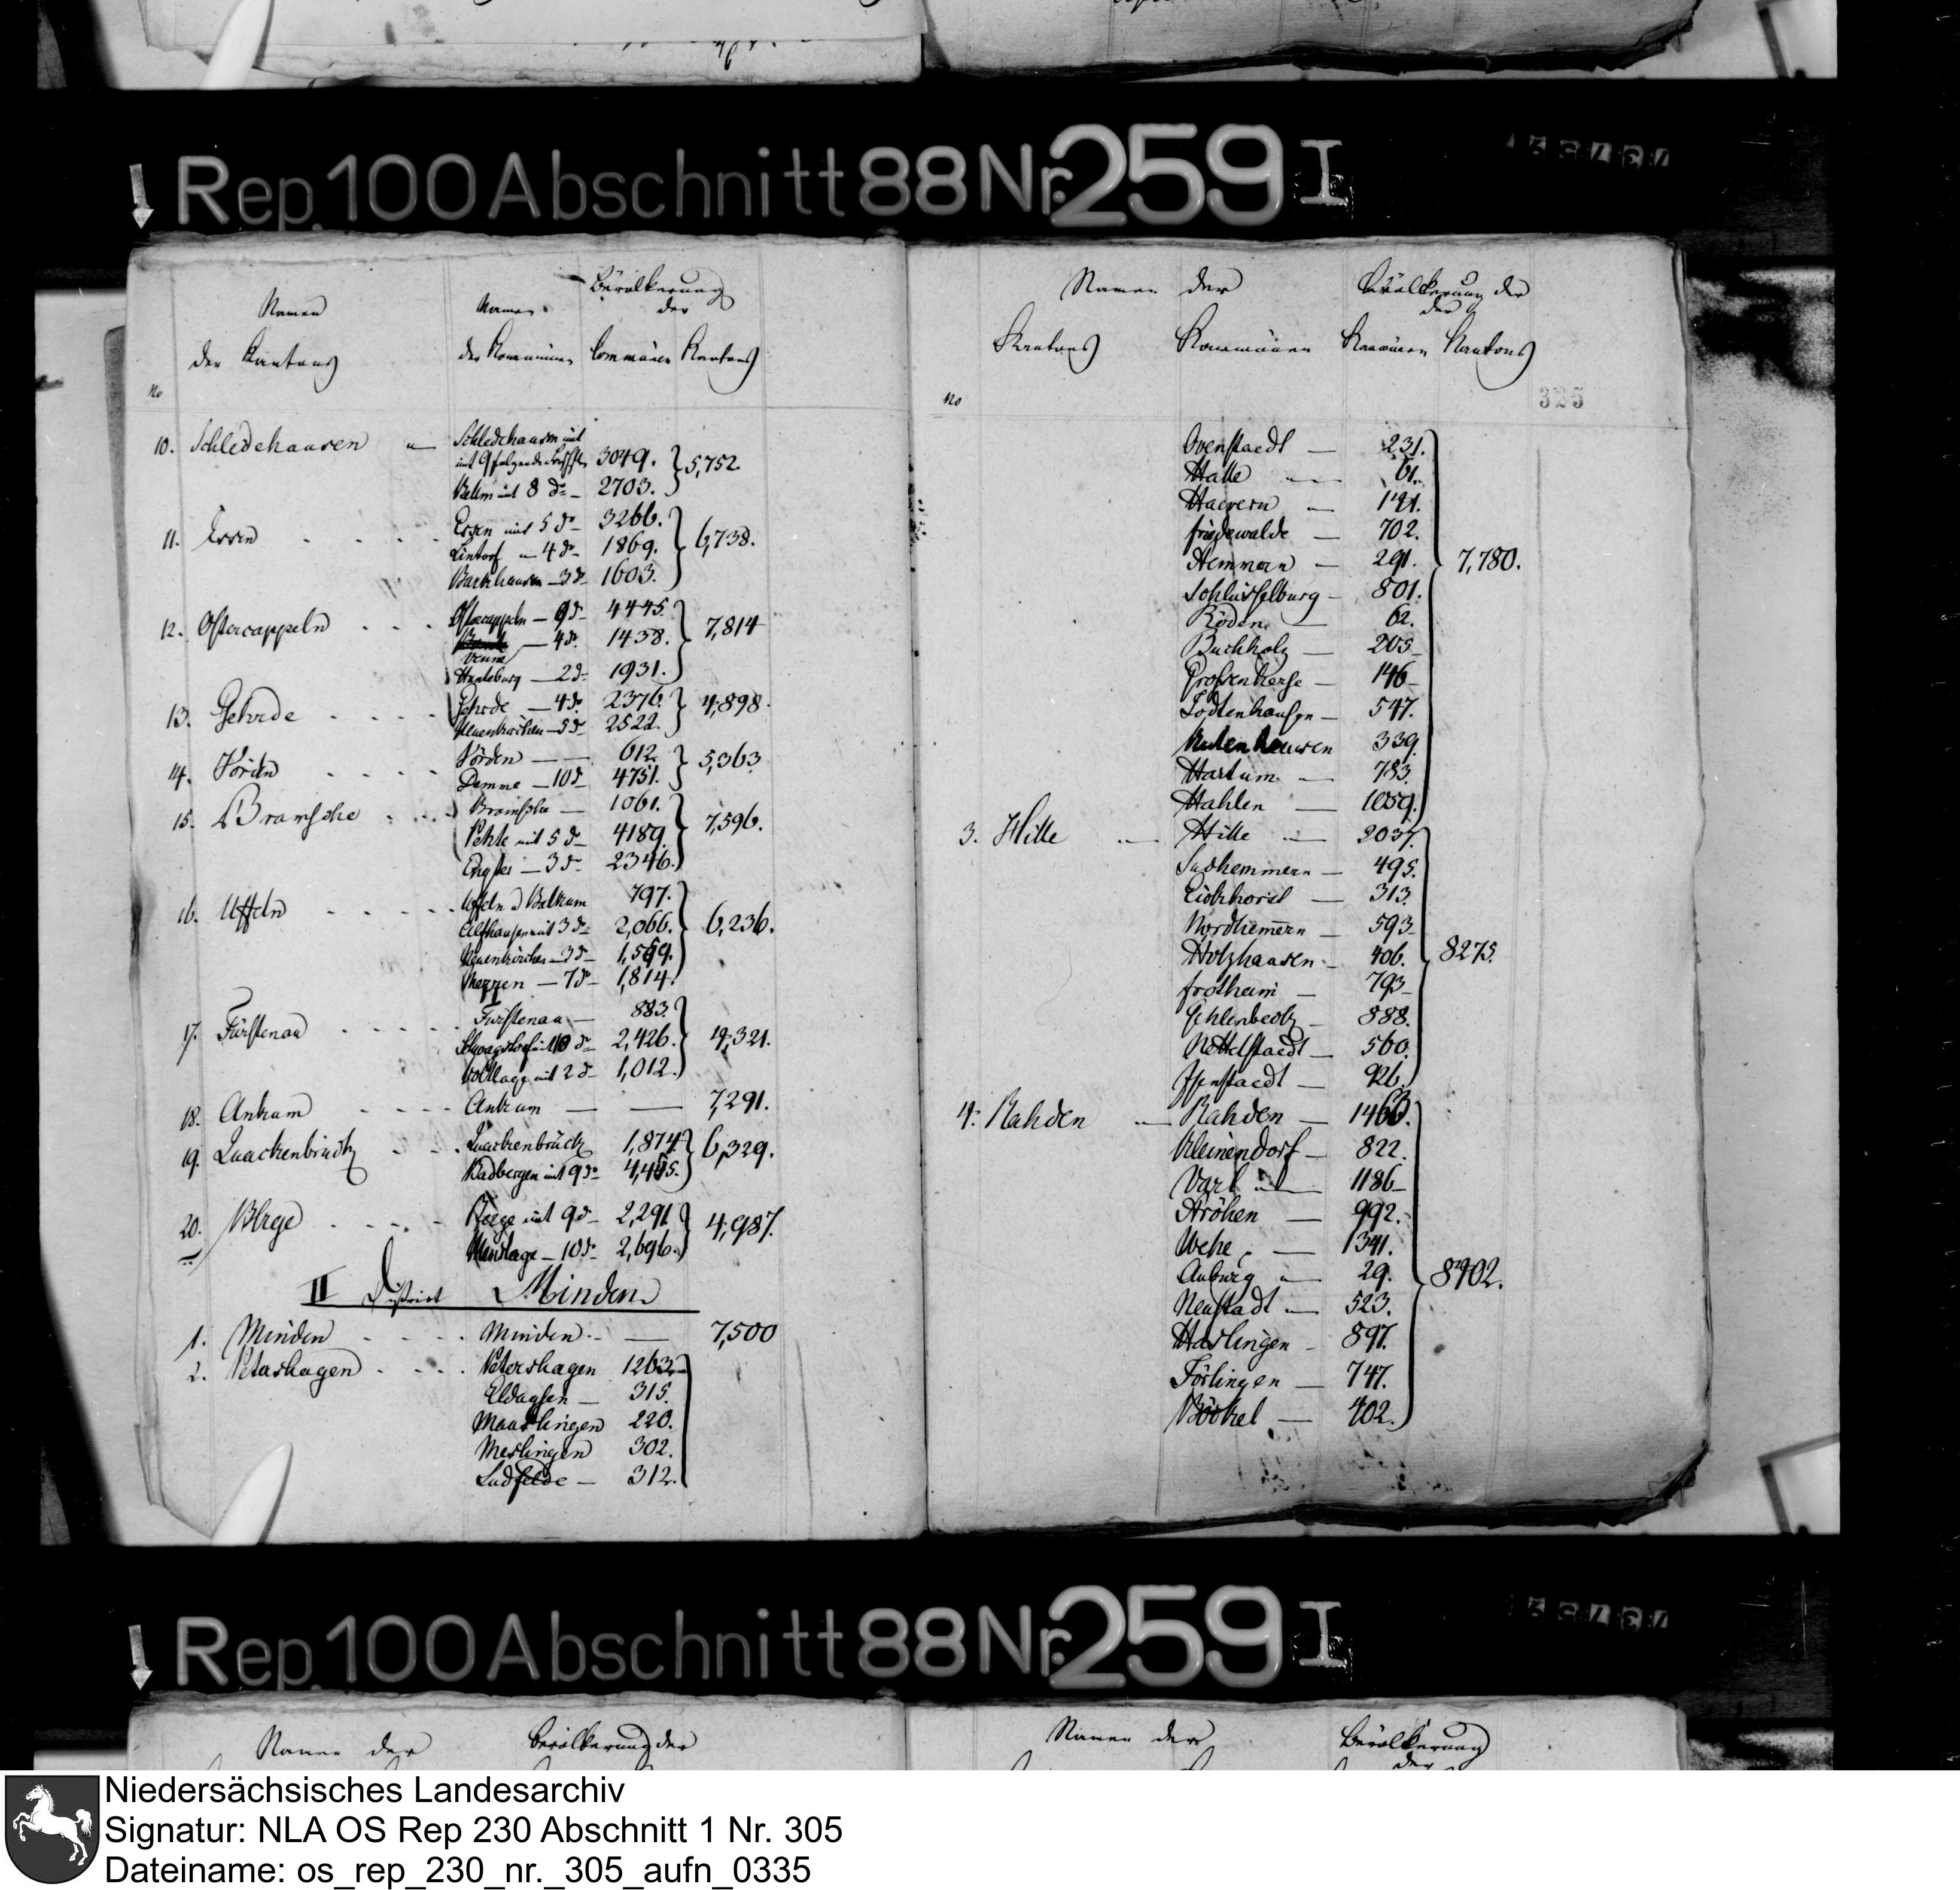 Rep. 100 Abschnitt 88 Nr. 259 I
Namen
der Kantons
Namen
der Kommünen
Bevölkerung
der
Commünen Kantons
No
10. Schledehausen Schledehausen mit
mit 9 folgenden 3049. 5,752.
Belm mit 8 do 2703.
11. Essen Essen mit 5 do 3266. 6,738.
Lintorf 4 do 1869.
Barkhausen 3 do 1603.
12. Ostercappeln Ostercappeln 9 do 4445. 7,814
Venne 4 do 1438.
Hunteburg 2 do 1931.
13. Gehrde Gehrde 4 do 2376. 4,898.
Neuenkirchen 5 do 2522.
14. Vörden Vörden 612. 5,363
Damme 10 do 4751.
15. Bramsche Bramsche 1061. 7,596.
Vehte mit 5 do 4189.
Engter 3 do 2346.
16. Uffeln Uffeln u Balkum 797. 6,236.
Alfhausen mit 3 do 2,066.
Neuenkirchen 3 do 1,559.
Merzen 7 do 1,814.
17. Fürstenau Fürstenau 883. 4,321.
Schwagstorf mit 10 do 2,426.
Voltlage mit 2 do 1,012.
18. Ankum Ankum 7,291.
19. Quackenbrück Quackenbrück 1,874. 6,329.
Badbergen mit 9 do 4,455.
20. Berge Berge mit 9 do 2,291 4,987.
Menslage 10 do 2,696.
II District Minden
1. Minden Minden 7,500
2. Petershagen Petershagen 1263.
Eldagsen 315.
Maaslingen 220.
Meslingen 302.
Südfelde 312.
Namen der
Kantons Kommünen
Bevölkerung der
der
Kommünen Kantons
325
No
Ovenstaedt 231.
Halle 61.
Haevern 191.
friedewalde 702.
Hemmern 291. 7,780.
Schlüsselburg 801.
Röden 62.
Buchholz 205
Grossenheerse 146
Todtenhausen 547.
Kutenhausen 339.
Hartum 783.
Hahlen 1059.
3. Hille Hille 2037.
Südhemmern 495.
Eickhorst 313.
Nordhemmern 593
Holzhausen 406. 8275.
frotheim 793
Gehlenbeck 888.
Nettelstaedt 560.
Isenstaedt 926.
4. Rahden Rahden 1463.
Kleinendorf 822.
Varl 1186
Ströhen 992.
Wehe 1341.
Auburg 29. 8402.
Neustadt 523.
Haslingen 897.
Förlingen 747.
Böckel 402.
Rep. 100 Abschnitt 88 Nr. 259 I
Namen der Bevölkerung der
Namen der Bevölkerung
der
Niedersächsisches Landesarchiv
Signatur: NLA OS Rep 230 Abschnitt 1 Nr. 305
Dateiname: os_rep_230_nr._305_aufn_0335